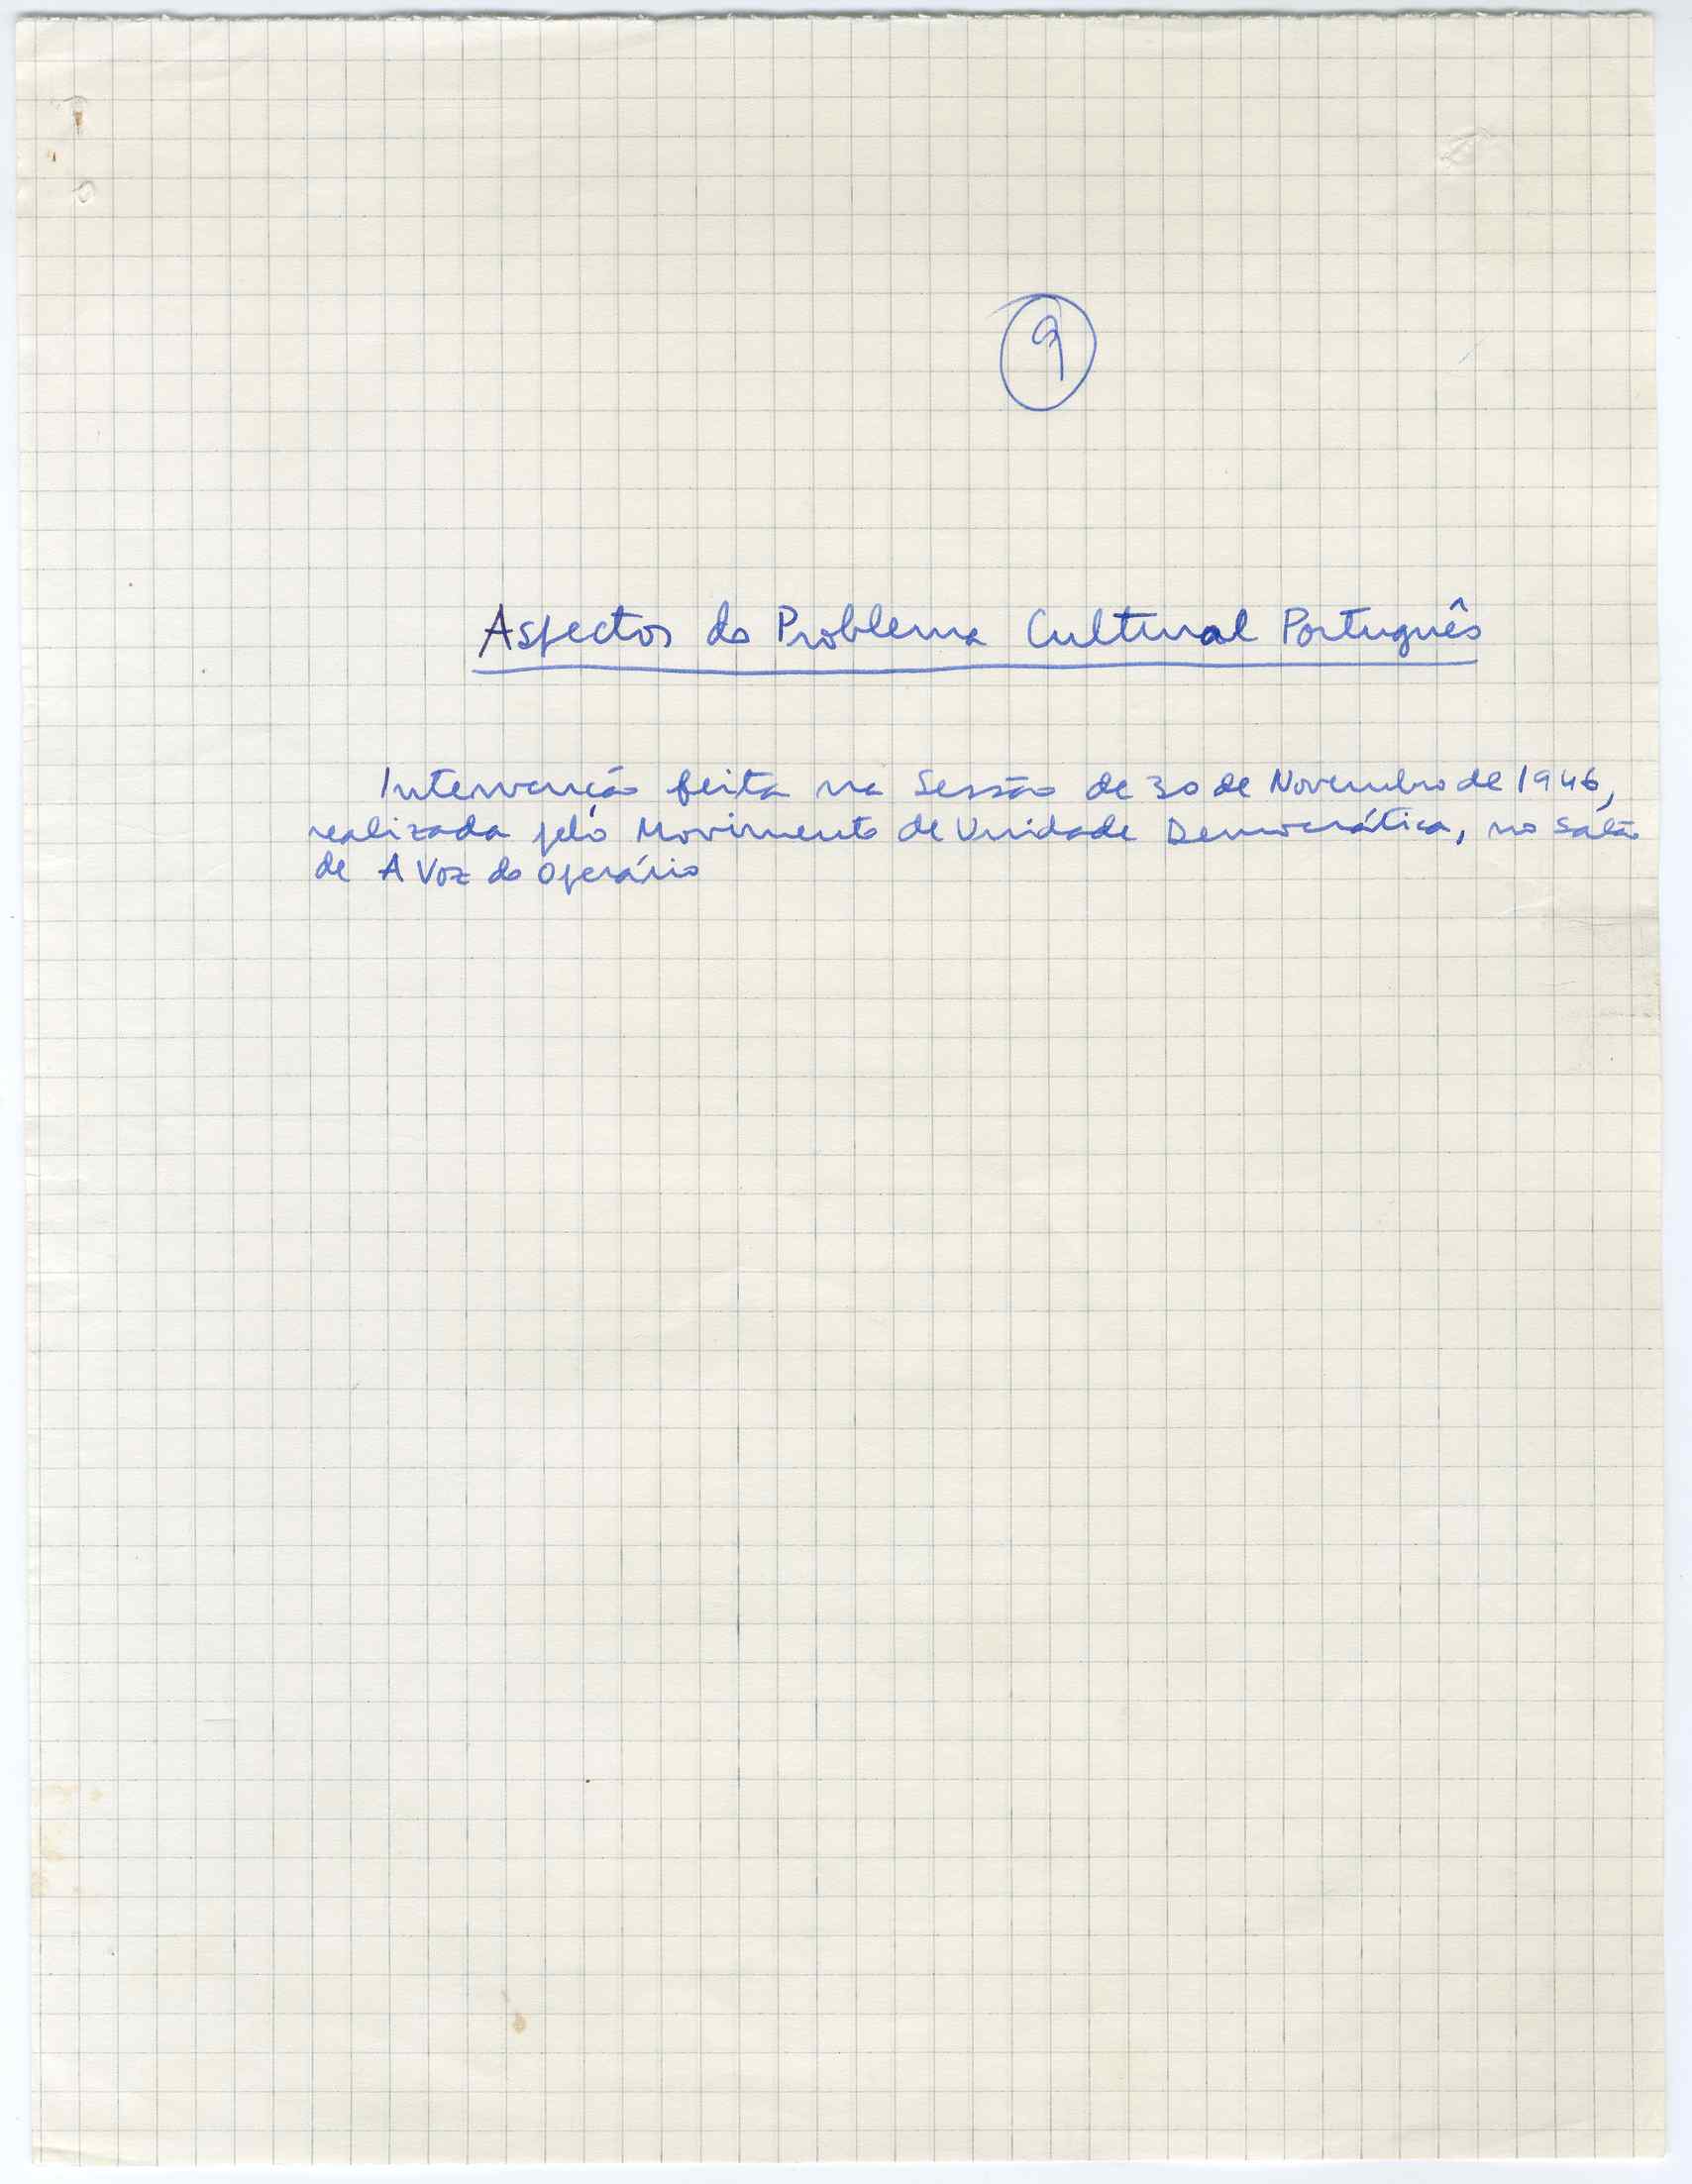 9
Aspectos do Problema Cultural Português
Intervenção feita na Sessão de 30 de Novembro de 1946,
realizada pelo Movimento de Unidade Democrática, no salão
de A Voz do Operário